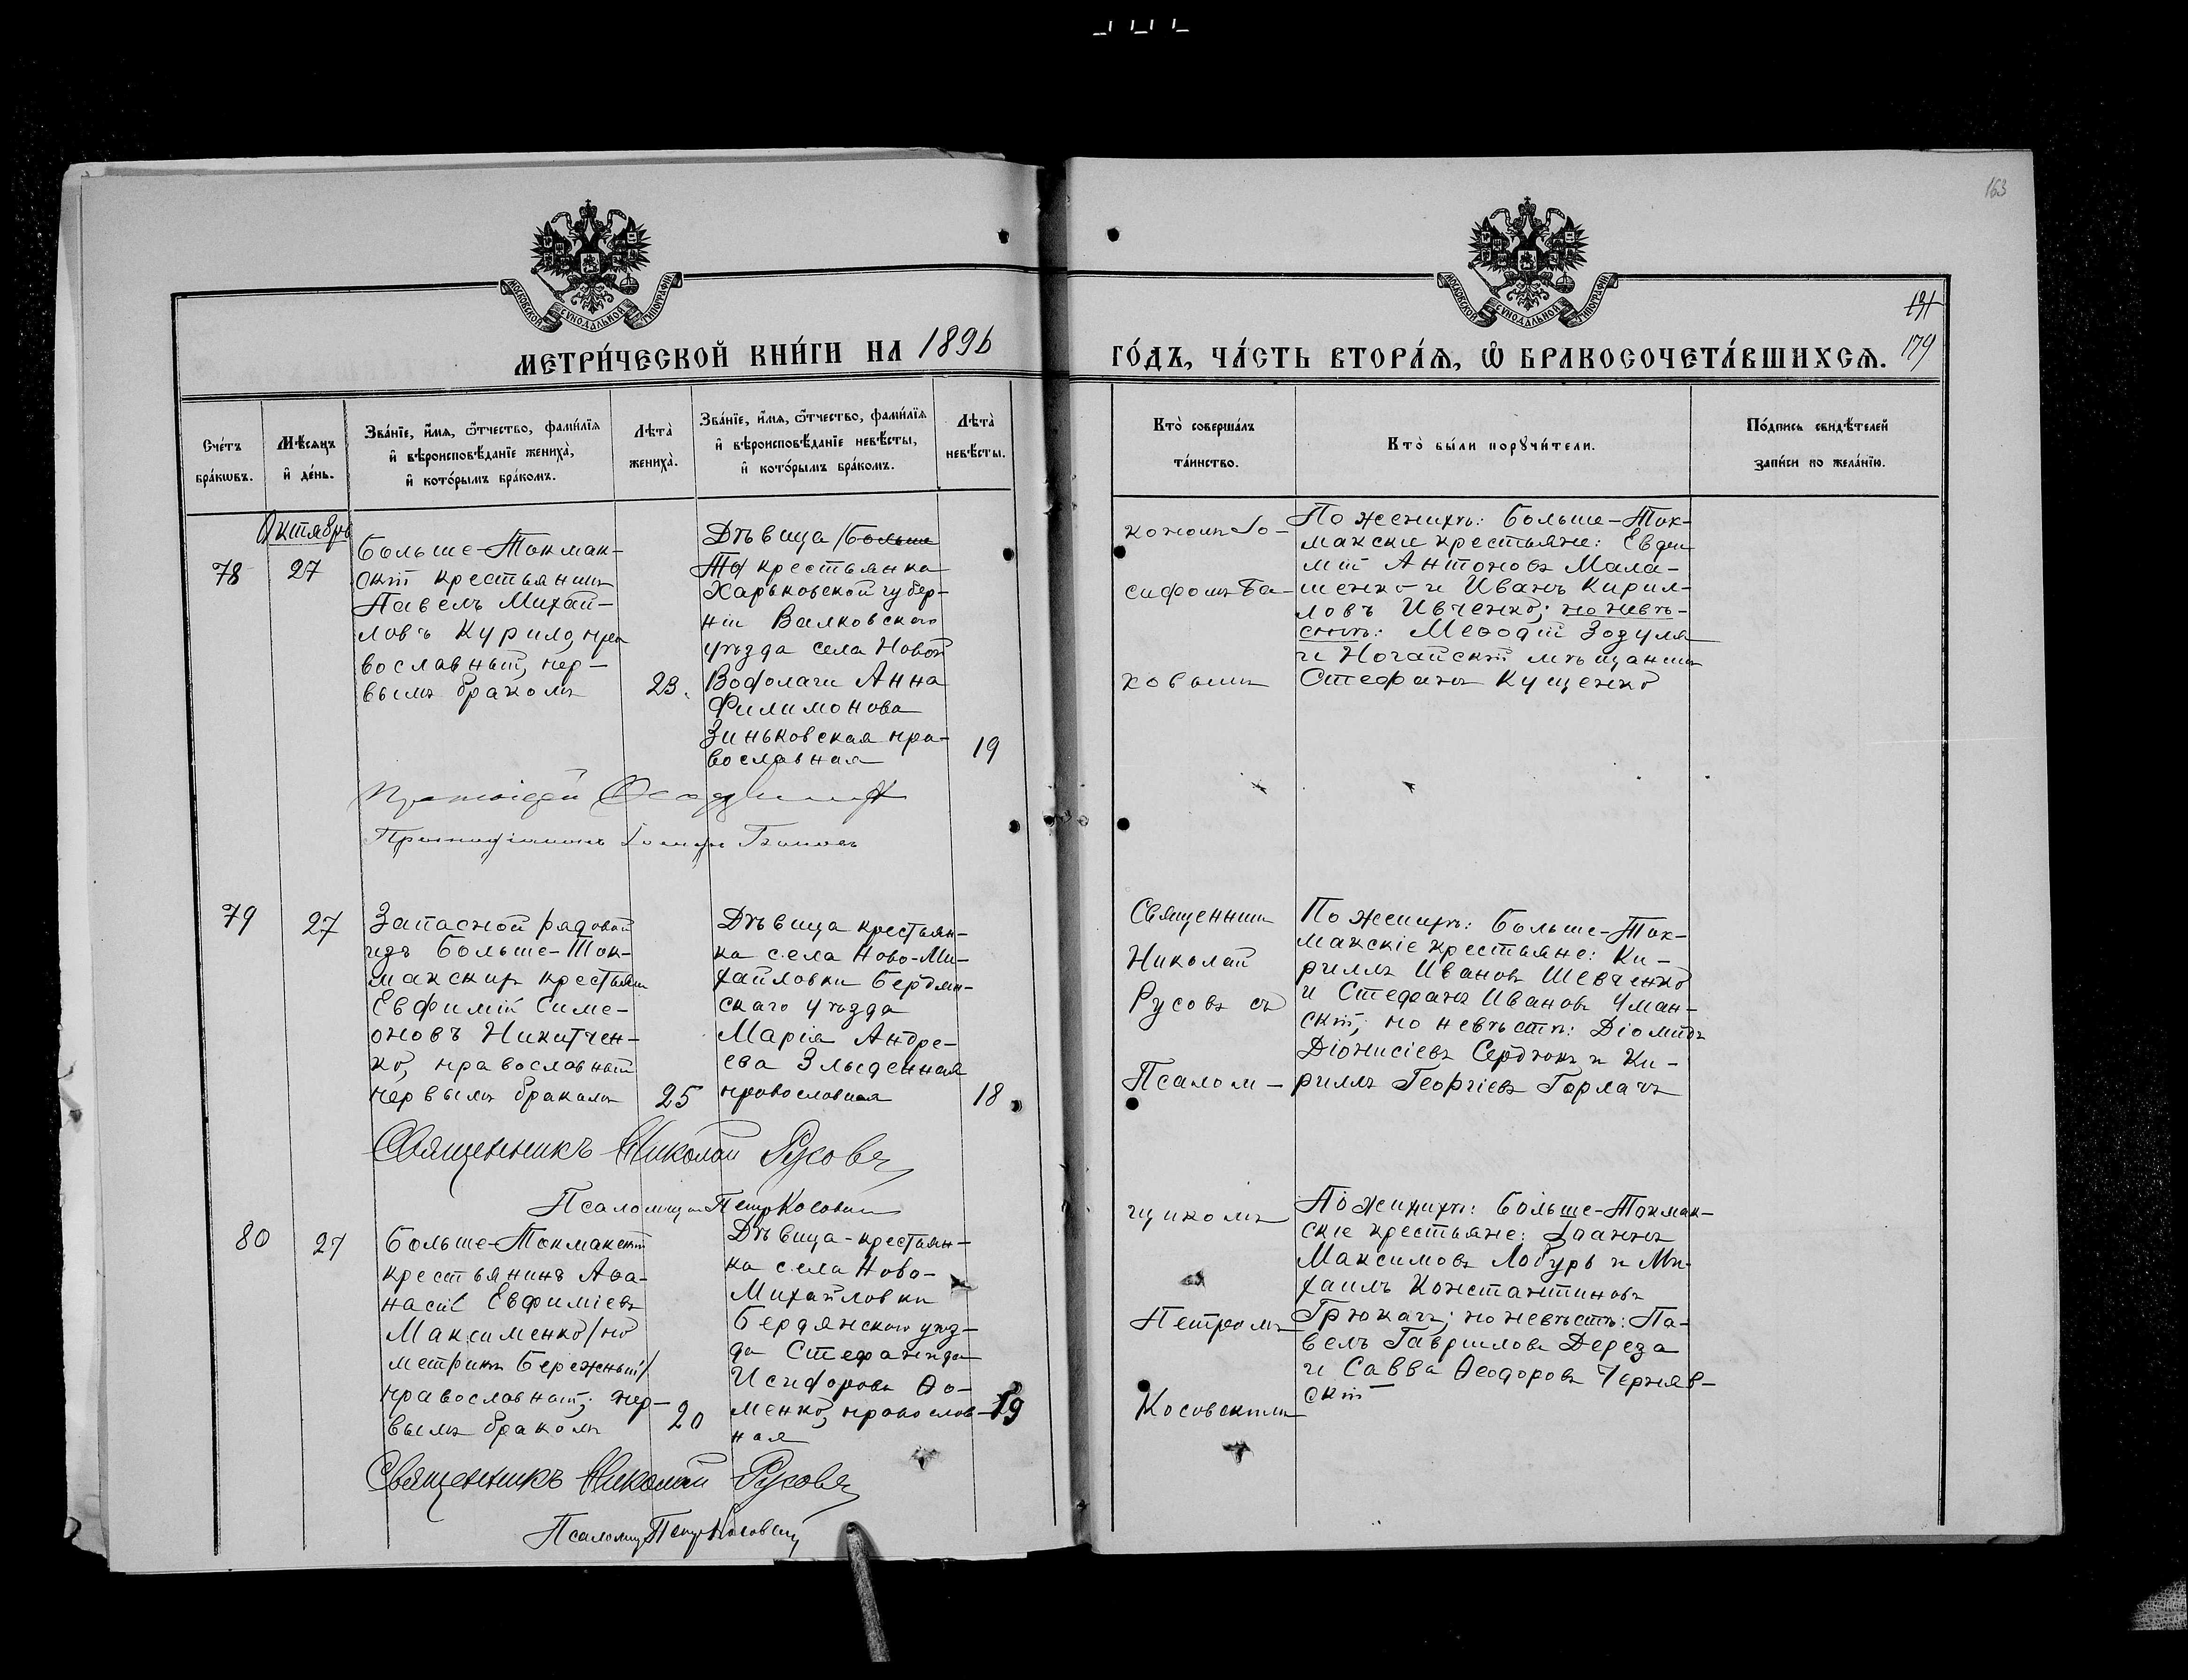 163
МОСКОВСКОЙ СѴНОДАЛЬНОЙ ТИПОГРАФІИ
МОСКОВСКОЙ СѴНОДАЛЬНОЙ ТИПОГРАФІИ
179
МЕТРИ́ЧЕСКОЙ КНИ́ГИ НА 1896
ГО́ДЪ, ЧА́СТЬ ВТОРА́Ѧ, Ѽ БРАКОСОЧЕТА́ВШИХСѦ.
Сче́тъ
бра́кѡвъ.
Мѣ́сяцъ
и҆ де́нь.
Зва́нїе, и҆́мя, ѻ҆́тчество, фами́лїя
и҆ вѣроисповѣ́данїе жениха̀,
и҆ кото́рымъ бра́комъ.
Лѣта̀
жениха̀.
Зва́нїе, и҆́мя, ѻ҆́тчество, фами́лїя
и҆ вѣроисповѣ́данїе невѣ́сты,
и҆ кото́рымъ бра́комъ.
Лѣта̀
невѣ́сты.
Кто̀ соверша́лъ
та́инство.
Кто̀ бы́ли порꙋчи́тели.
По́дпись свидѣ́телей
за́писи по жела́нїю.
Октябрь
78
27
Больше-Токмак-
скій крестьянинъ
Павелъ Михай-
ловъ Курило, пра
вославный, пер-
вымъ бракомъ
23.
Дѣвица /Больше
То/ крестьянка
Харьковской губер-
ніи Валковскаго
уѣзда села Новой
Водолаги Анна
Филимонова
Зиньковская пра-
вославная
19
кономъ Іо-
сифомъ Ба-
ковымъ
По женихѣ: Больше-Ток-
макскіе крестьяне: Евфи
мій Антоновъ Мала-
шенко и Иванъ Кирил-
ловъ Ивченко; по невѣ-
стѣ: Меѳодій Зозуля
и Ногайскій мѣщанинъ
Стефанъ Кущенко
Протоіерей
Протодіаконъ Іосифъ
79
27
Запасной рядовой
изъ Больше-Ток-
макскихъ крестьянъ
Евфимій Симе-
оновъ Никитчен-
ко, православный
первымъ бракомъ
25
Дѣвица крестьян-
ка села Ново-Ми-
хайловки Бердян-
скаго уѣзда
Марія Андре-
ева Злыденная
православная
18
Священникъ
Николай
Русовъ съ
Псалом-
По женихѣ: Больше-Ток-
макскіе крестьяне: Ки-
риллъ Ивановъ Шевченко
и Стефанъ Ивановъ Уман-
скій; по невѣстѣ: Діомидъ
Діонисіевъ Сердюкъ и Ки-
риллъ Георгіевъ Горлачъ
Священникъ Николай Русовъ
Псаломщ. Петръ Косовскій
80
27
Больше-Токмакскій
крестьянинъ Аѳа-
насій Евфиміевъ
Максименко /по
метрикѣ Бережный/
православный; пер-
вымъ бракомъ
20
Дѣвица-крестьян-
ка села Ново-
Михайловки
Бердянскаго уѣз-
да Стефанида
Исидорова Ѳо-
менко, православ-
ная
19
щикомъ
Петромъ
Косовскимъ
По женихѣ: Больше-Токмак-
скіе крестьяне: Іоаннъ
Максимовъ Лобурь и Ми-
хаилъ Константиновъ
Грюкачъ; по невѣстѣ: Па-
велъ Гавриловъ Дереза
и Савва Ѳеодоровъ Черняв-
скій
Священникъ Николай Русовъ
Псаломщ. Петръ Косовскій